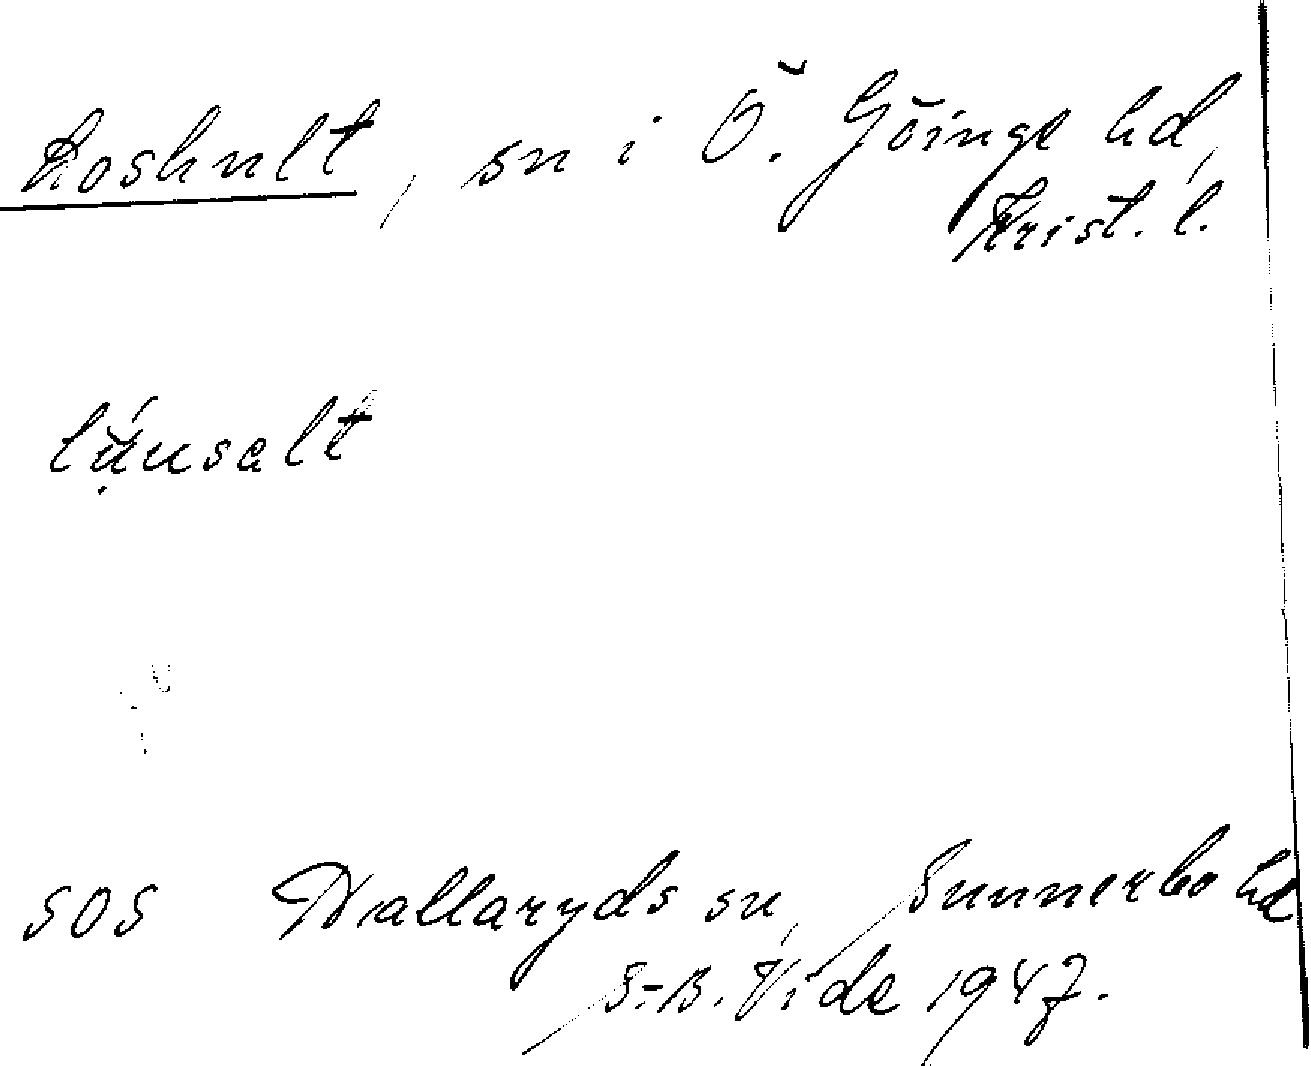 Loshult, sn i Ö. Göinge hd,
Krist. l.
SOS Hallaryds sn, Sunnerbo hd
S.-B. Vide 1947.